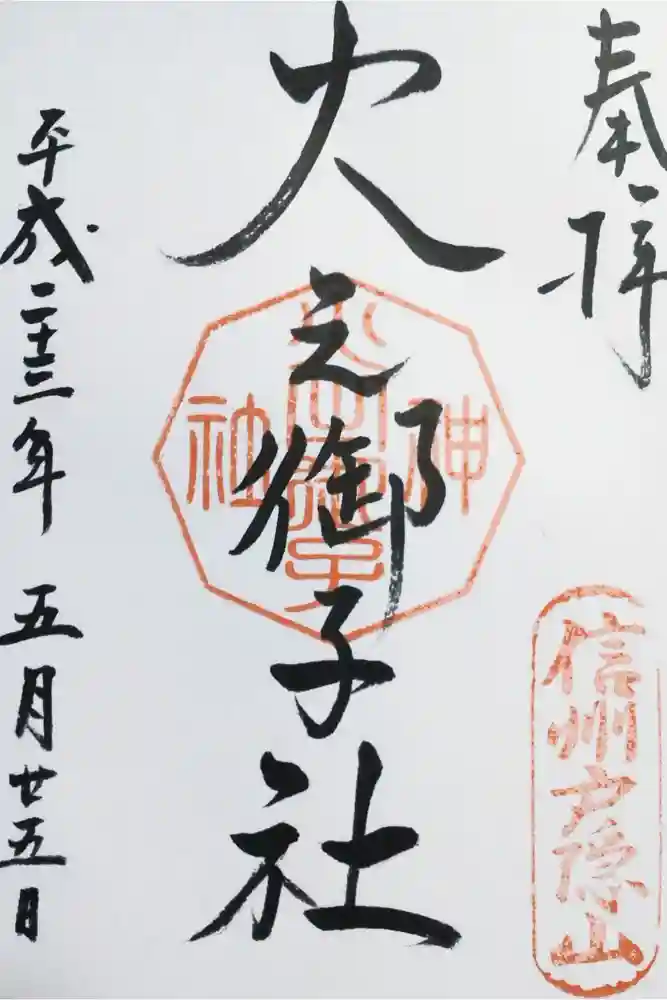 奉拝
信州戸隠山
火之御子社
神社
平成二十三年五月廿五日